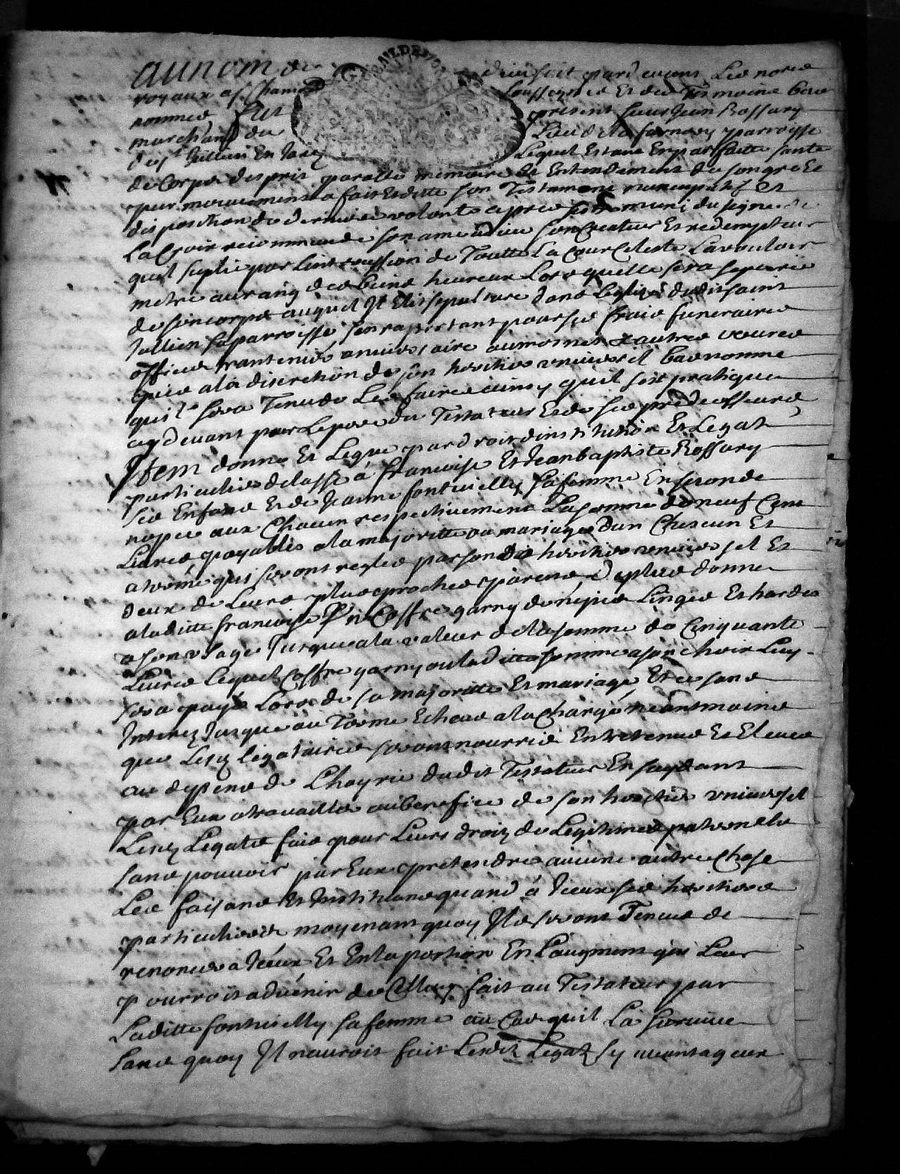 au nom de dieu soit par devant les notre
royaux a St Chamond soussignes et des tesmoins bas
nommes fut present sieur Jean Rossary
marchand du lieu de la parroisse
de St Jullien en Jarez lequel estant en parfaitte sante
de corps desprit parolle memoire et entendement de son gre et
pur mouvement a fait et ditte son testament nuncupatif et
disposition de derniere volonte apres sestre muni du signe de
la Croix recommande son ame a dieu son Createur et redempteur
quil suplie par lintercession de toutte la Cour Celeste la vouloir
metre au rang des biens heureux lors quelle sera separée
de son corps auquel Il elit sepulture dans leglise dudit saint
Jullien sa parroisse sen raportant pour ses frais funeraires
office quarantenes anniversaire aumosnes et autres oeuvres
pies a la discretion de son heritier universel bas nomme
quil sera tenu de les faire ainsy quil soit pratique
cy devant par le pere du testateur et de ses predecesseurs
Item donne et legue par droit dinstitution et legat
particulier delaisse à francoise et Jean baptiste Rossary
ses enfans et de Jeanne fontvielly sa femme en secondes
nopces aux chacun respectivement la somme de neuf Cens
livres payables a la majorité ou mariage dun chascun et
a termes qui seront regles par sondit heritier universel et
deux de leurs plus proches parens, de plus donne
a laditte francoise un coffre garny de nipes linges et hardes
a son usage jusques a la valeur de la somme de cinquante
livres lequel coffre garny ou laditte somme a son choix luy
sera payé lors de sa majorité et mariage et ce sans
Interez jusques au terme echeue a la charge neantmoins
que lesd legataires seront nourris entretenus et eleves
au depens de lhoyrie dudit testateur en saydant
par eux a travaille au benefice de son heritier universel
lesd legats fais pour leurs droiz de legitime paternelle
sans pouvoir par eux pretendre aucune autre chose
les faisans et Instituans quand à Iceux ses heritiers
particuliers moyenant quoy Ils seront tenus de
renoncer a Iceux et en la portion en laugment qui leur
pourroit advenir de celluy fait au testateur par
laditte fontvielly sa femme au cas quil la survive
sans quoy Il nauroit fait lesdt legatz sy avantageux